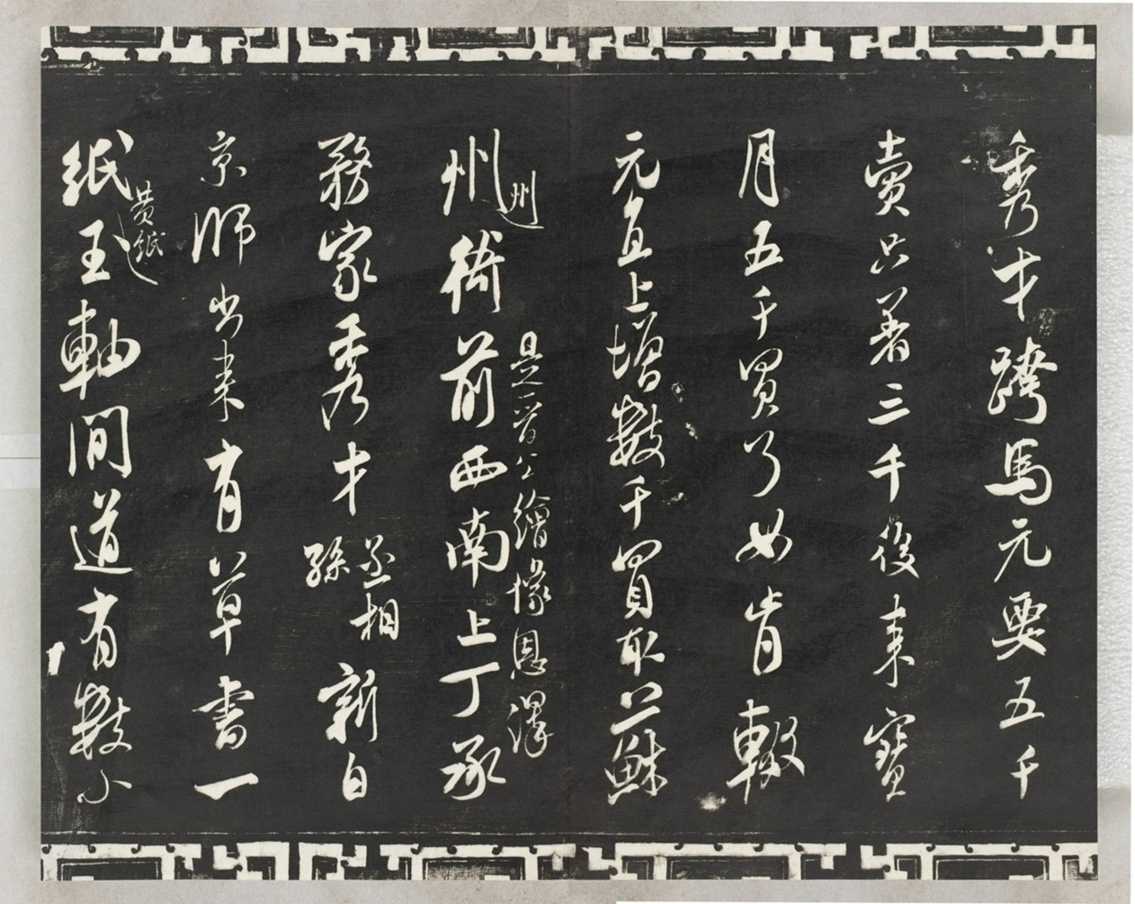 秀才跨馬元要五千
賣只著三千後來寶
月五千買了如肯輟
元直上增數千買取蘇
州州衙前西南上丁承
是丁晉公繪像恩澤
務家秀才丞相孫新自
京師出來有草書一
紙黃紙玉軸間道有數小